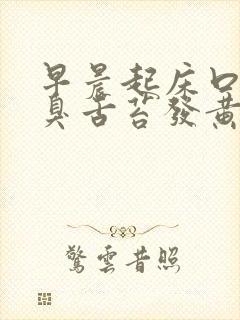 早晨起床口
臭舌苔發黃
驚雲昔照